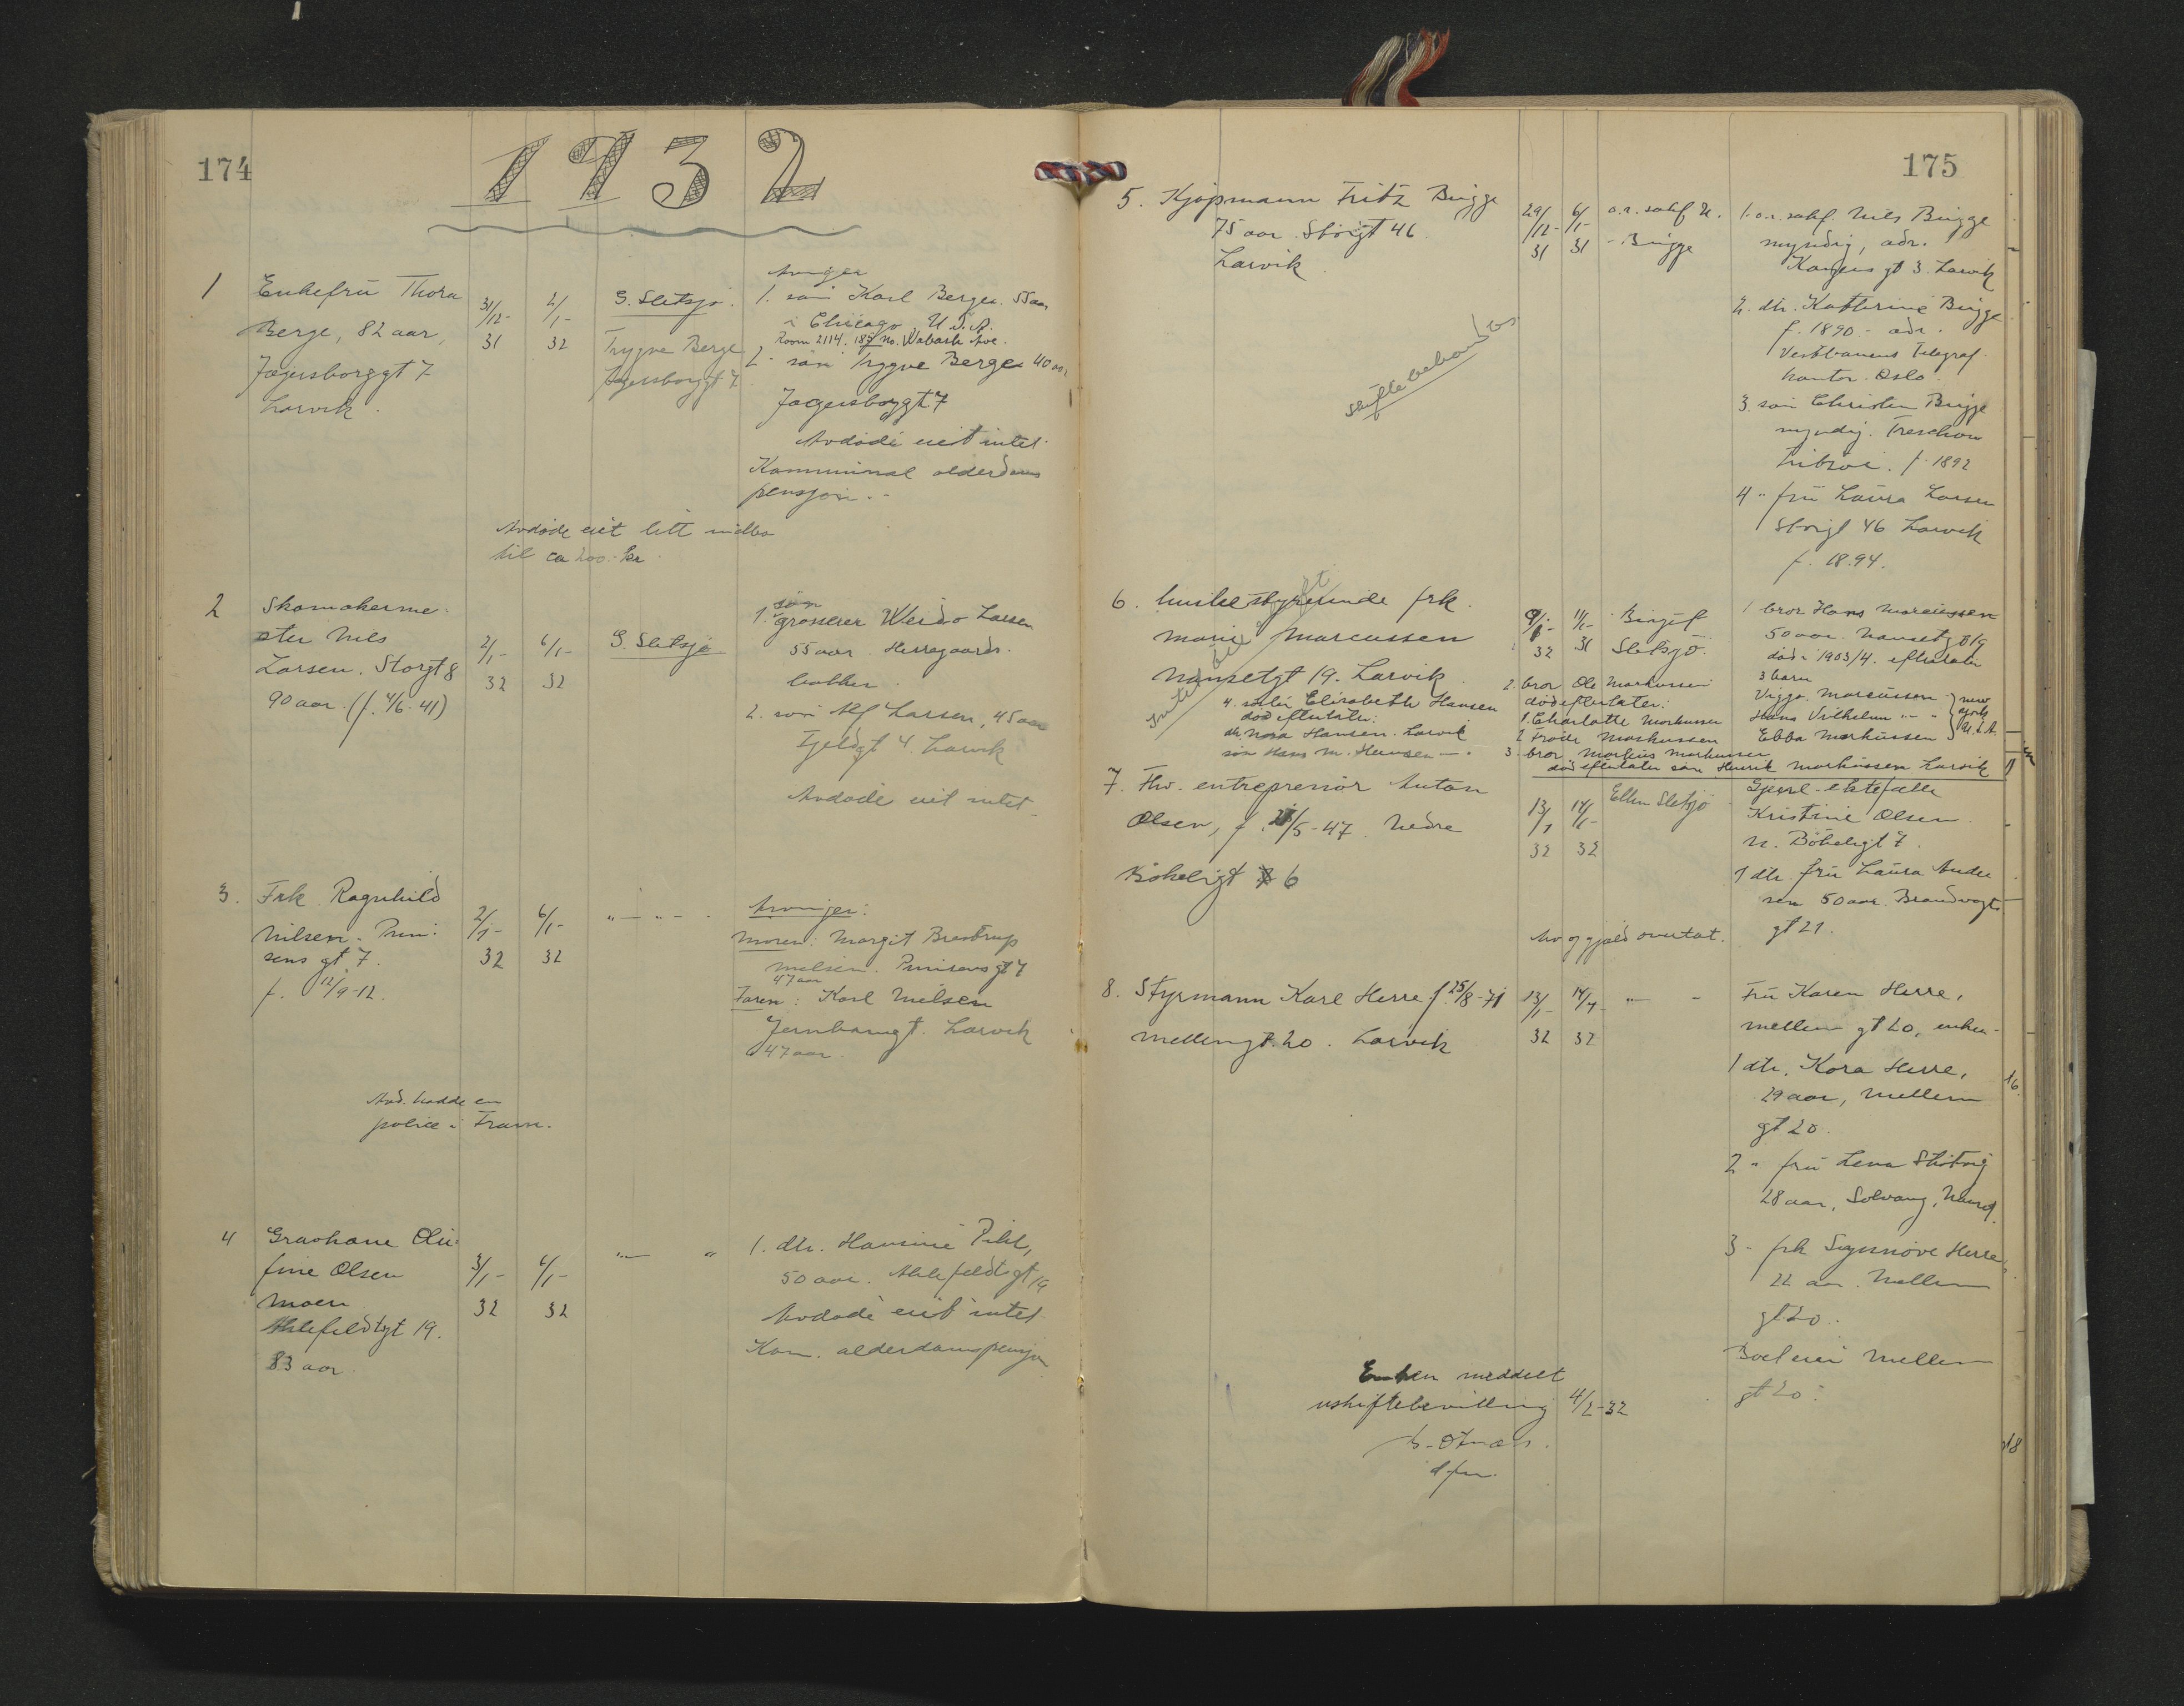 174
1932
1
Enkefru Thora
Berge, 82 aar,
Jægersborggt 7
Larvik.
31/12-
31
2/1-
32
G. Sletsjø.
Trygve Berge
Jægersborggt 7
Avinger
1. søn Karl Berger. 55 aar
i Chicago, U.S.A.
Room 2114. 185 No. Wabash Ave.
2- søn Trygve Berge 40 aar
Jægersborggt 7
Avdøde eiet intet.
Kommunal alderdoms
pensjon.-
Avdøde eiet litt indbo
til ca 200.- kr.
2
Skomakerme-
ster Nils
Larsen. Storgt 8
90 aar. (f. 4/6-41)
2/1-
32
6/1-
32
G. Sletsjø
1. søn grosserer Larsen
55 aar. Herregaards-
bakken.
2. søn Alf Larsen, 45 aar
Fjeldgt 4. Larvik
Avdøde eiet intet.
3.
Frk. Ragnhild
Nilsen. Prin-
sens gt. 7.
f. 12/9-12.
2/1-
32
6/1-
32
" — " — .
Arvinger:
Moren: Margit Brastrup
Nielsen. Prinsens gt 7
47 aar
Faren: Karl Nielsen
Jernbanegt. Larvik
47 aar.
Avd. hadde en
police i Fram.
4
Gravkone Oli-
fine Olsen
Moen
Ahlefeldtgt 19.
83 aar.
3/1-
32
6/1-
32
" — "
1. dtr. Hansine Pihl,
50 aar. Ahlefeldtsgt 19
Avdøde eiet intet
Kom. alderdomspensjon
175
5. Kjøpmann Fritz Bugge
75 aar. Storgt 46
Larvik.
29/12-
31
6/1-
31
o.r. sakf. N.
- Bugge
1. o.r. sakf. Nils Bugge
myndig, adr.
Kongens gt 3. Larvik
2. dtr. Katherine Bugge
f. 1890 - adr.
Vestbanens Telegraf-
kontor. Oslo.
3. søn Christen Bugge
myndig. Treschow
f. 1892
4 " fru Laura Larsen
Storgt 46 Larvik
f. 18.94.
Skiftebehandles
6. husbestyrerinde frk.
Marie Marcussen
Nansetgt 19. Larvik
9/1-
32
11/1-
31
Birgit
Sletsjø.
1 bror Hans Marcussen
50 aar. Nansetgt 19
død i 1903/4. efterlater
3 barn
Viggo Marcussen
Hans Vilhelm " - "
Ebba Markussen
New York U.S.A.
2. bror Ole Markussen
død efterlater:
1. Charlotte Markussen
2 Frode Markussen
3. bror Markus Markussen
død efterlater søn Henrik Markussen Larvik
4. søster Elisabeth Hansen
død efterlater:
dtr. Nora Hansen. Larvik
søn Hans M. Hansen — "
7. Fhv. entreprenør Anton
Olsen, f. 21/5-47. Nedre
Bøkeligt 6
13/1
32
14/1-
32
Ellen Sletsjø
Gjenl. ektefælle
Kristine Olsen
N. Bøkeligt 7.
1 dtr. fru Laura Ander
sen 50 aar. Brandvagts
gt 21.
Arv og gjæld overtat.
8. Styrmann Karl Herre f. 25/8-71
Mellemgt. 20. Larvik
13/1-
32
14/1-
32
" — -
Fru Karen Herre,
Mellem gt 20, enken-
1 dtr. Kora Herre,
29 aar, Mellem
gt 20.
2 " fru Lena
28 aar, Solvang, Nanset.
3 - frk Synnøve Herre,
22 aar. Mellem
gt 20.
Boet eier Mellem
gt 20.
Enken meddelt
uskiftebevilling 4/2-32
16.
18